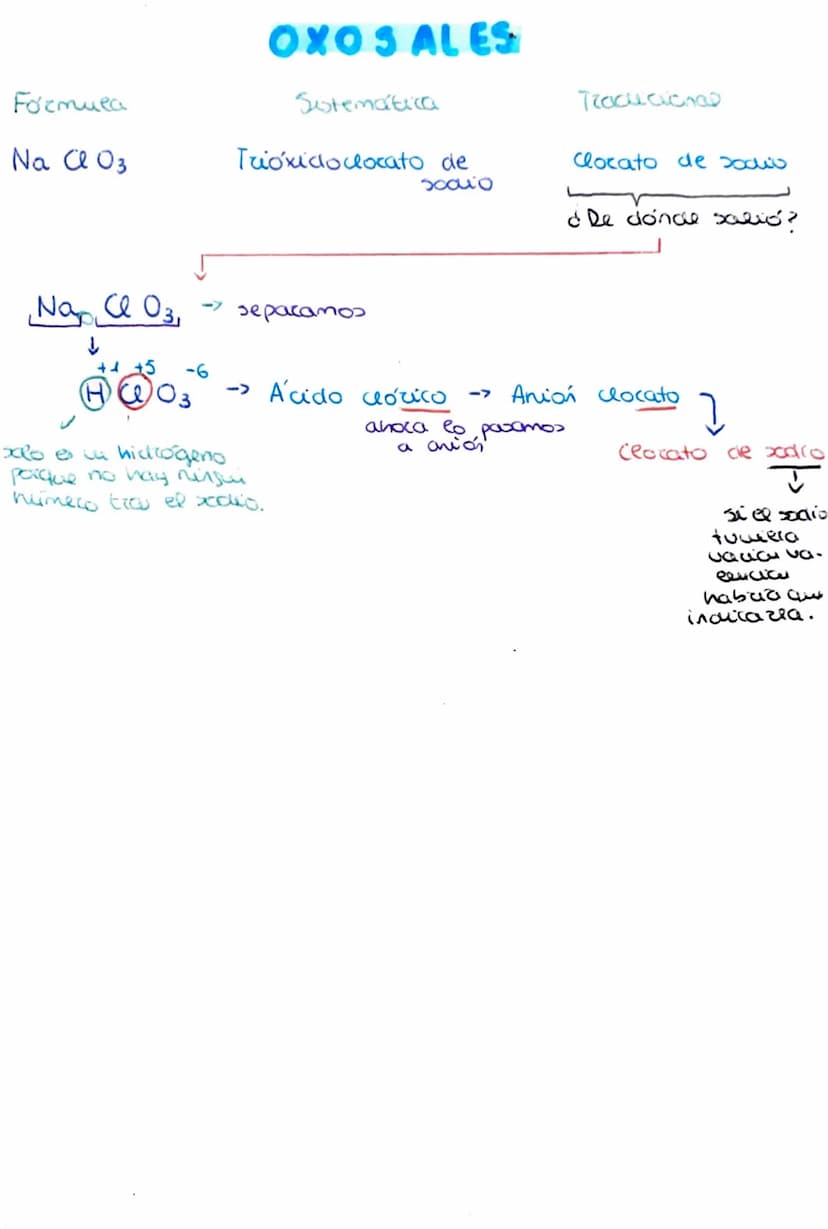 OXOSALES
Fórmula Sistemática Tradicional
Na Cl O3 Trióxidoclorato de sodio Clorato de sodio
¿De dónde salió?
Na Cl O3 -> separamos
+1 +5 -6
H Cl O3 -> Ácido clórico -> Anión clorato
ahora lo pasamos
a anión
Clorato de sodio
solo es un hidrógeno
porque no hay ningún
número tras el sodio.
si el sodio
tuviera
varias va-
lencias
habría que
indicarla.